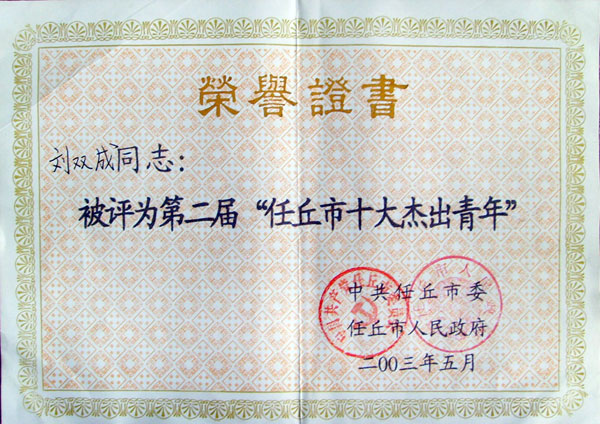 榮譽證書
刘双成同志：
被评为第二届“任丘市十大杰出青年”
中共任丘市委
任丘市人民政府
二00三年五月